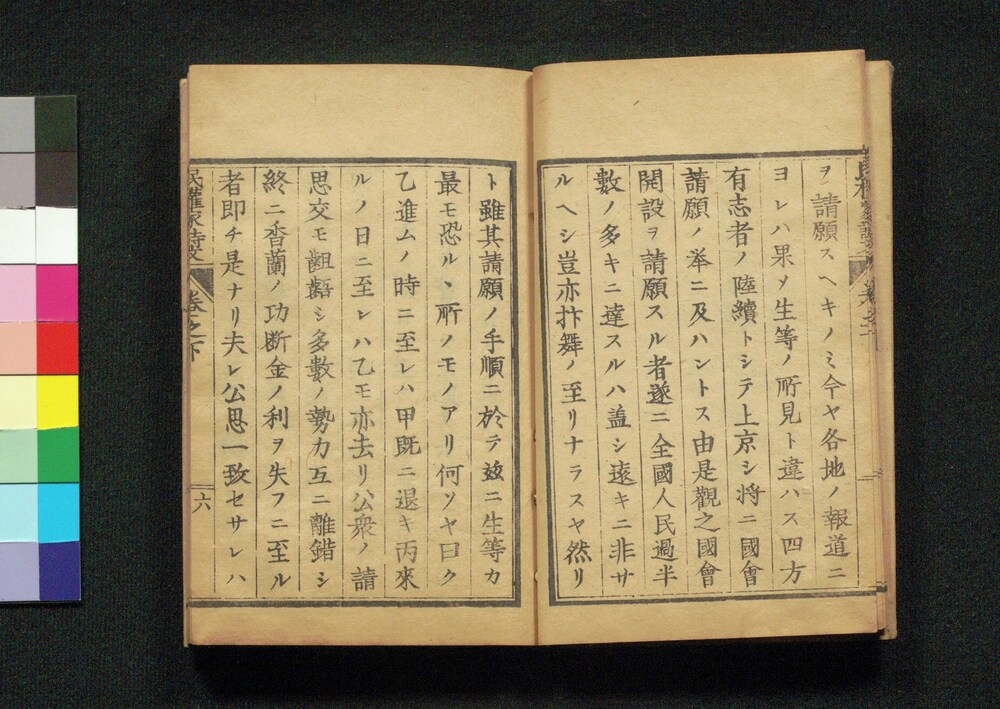 ヲ請願スヘキノミ今ヤ各地ノ報道ニ
ヨレハ果メ生等ノ所見ト違ハス四方
有志者ノ陸續トシテ上京シ將ニ國會
請願ノ挙ニ及ハントス由是觀之國會
開設ヲ請願スル者遂ニ全國人民過半
數ノ多キニ達スルハ盖シ遠キニ非サ
ルヘシ豈亦抃舞ノ至リナラスヤ然リ
ト雖其請願ノ手順ニ於テ玆ニ生等カ
最モ恐ルヽ所ノモノアリ何ソヤ曰ク
乙進ムノ時ニ至レハ甲既ニ退キ丙來
ルノ日ニ至レハ乙モ亦去リ公衆ノ請
思交モ齟齬シ多數ノ勢力互ニ離錯シ
終ニ香蘭ノ功断金ノ利ヲ失フニ至ル
者即チ是ナリ夫レ公思一致セサレハ
民權家
卷之下
六